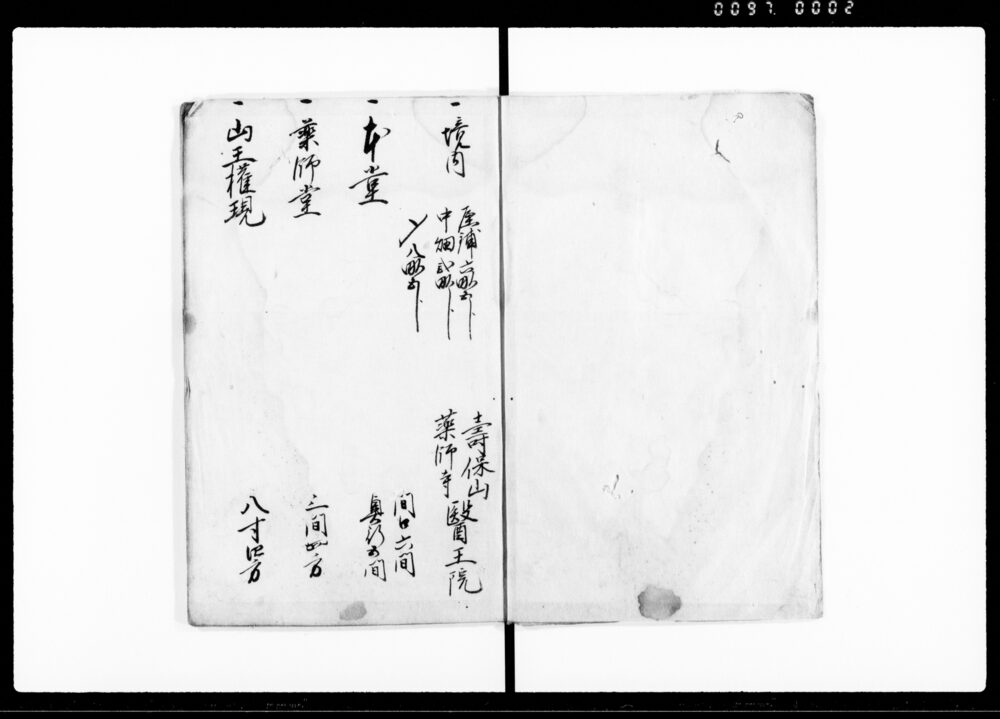 0097 0002
一 境内
屋鋪六畝五歩
中畑弐畝歩
〆八畝五歩
壽保山
薬師寺 醫王院
一 本堂
間口六間
奥行五間
一 薬師堂 三間四方
一 山王権現 八寸四方